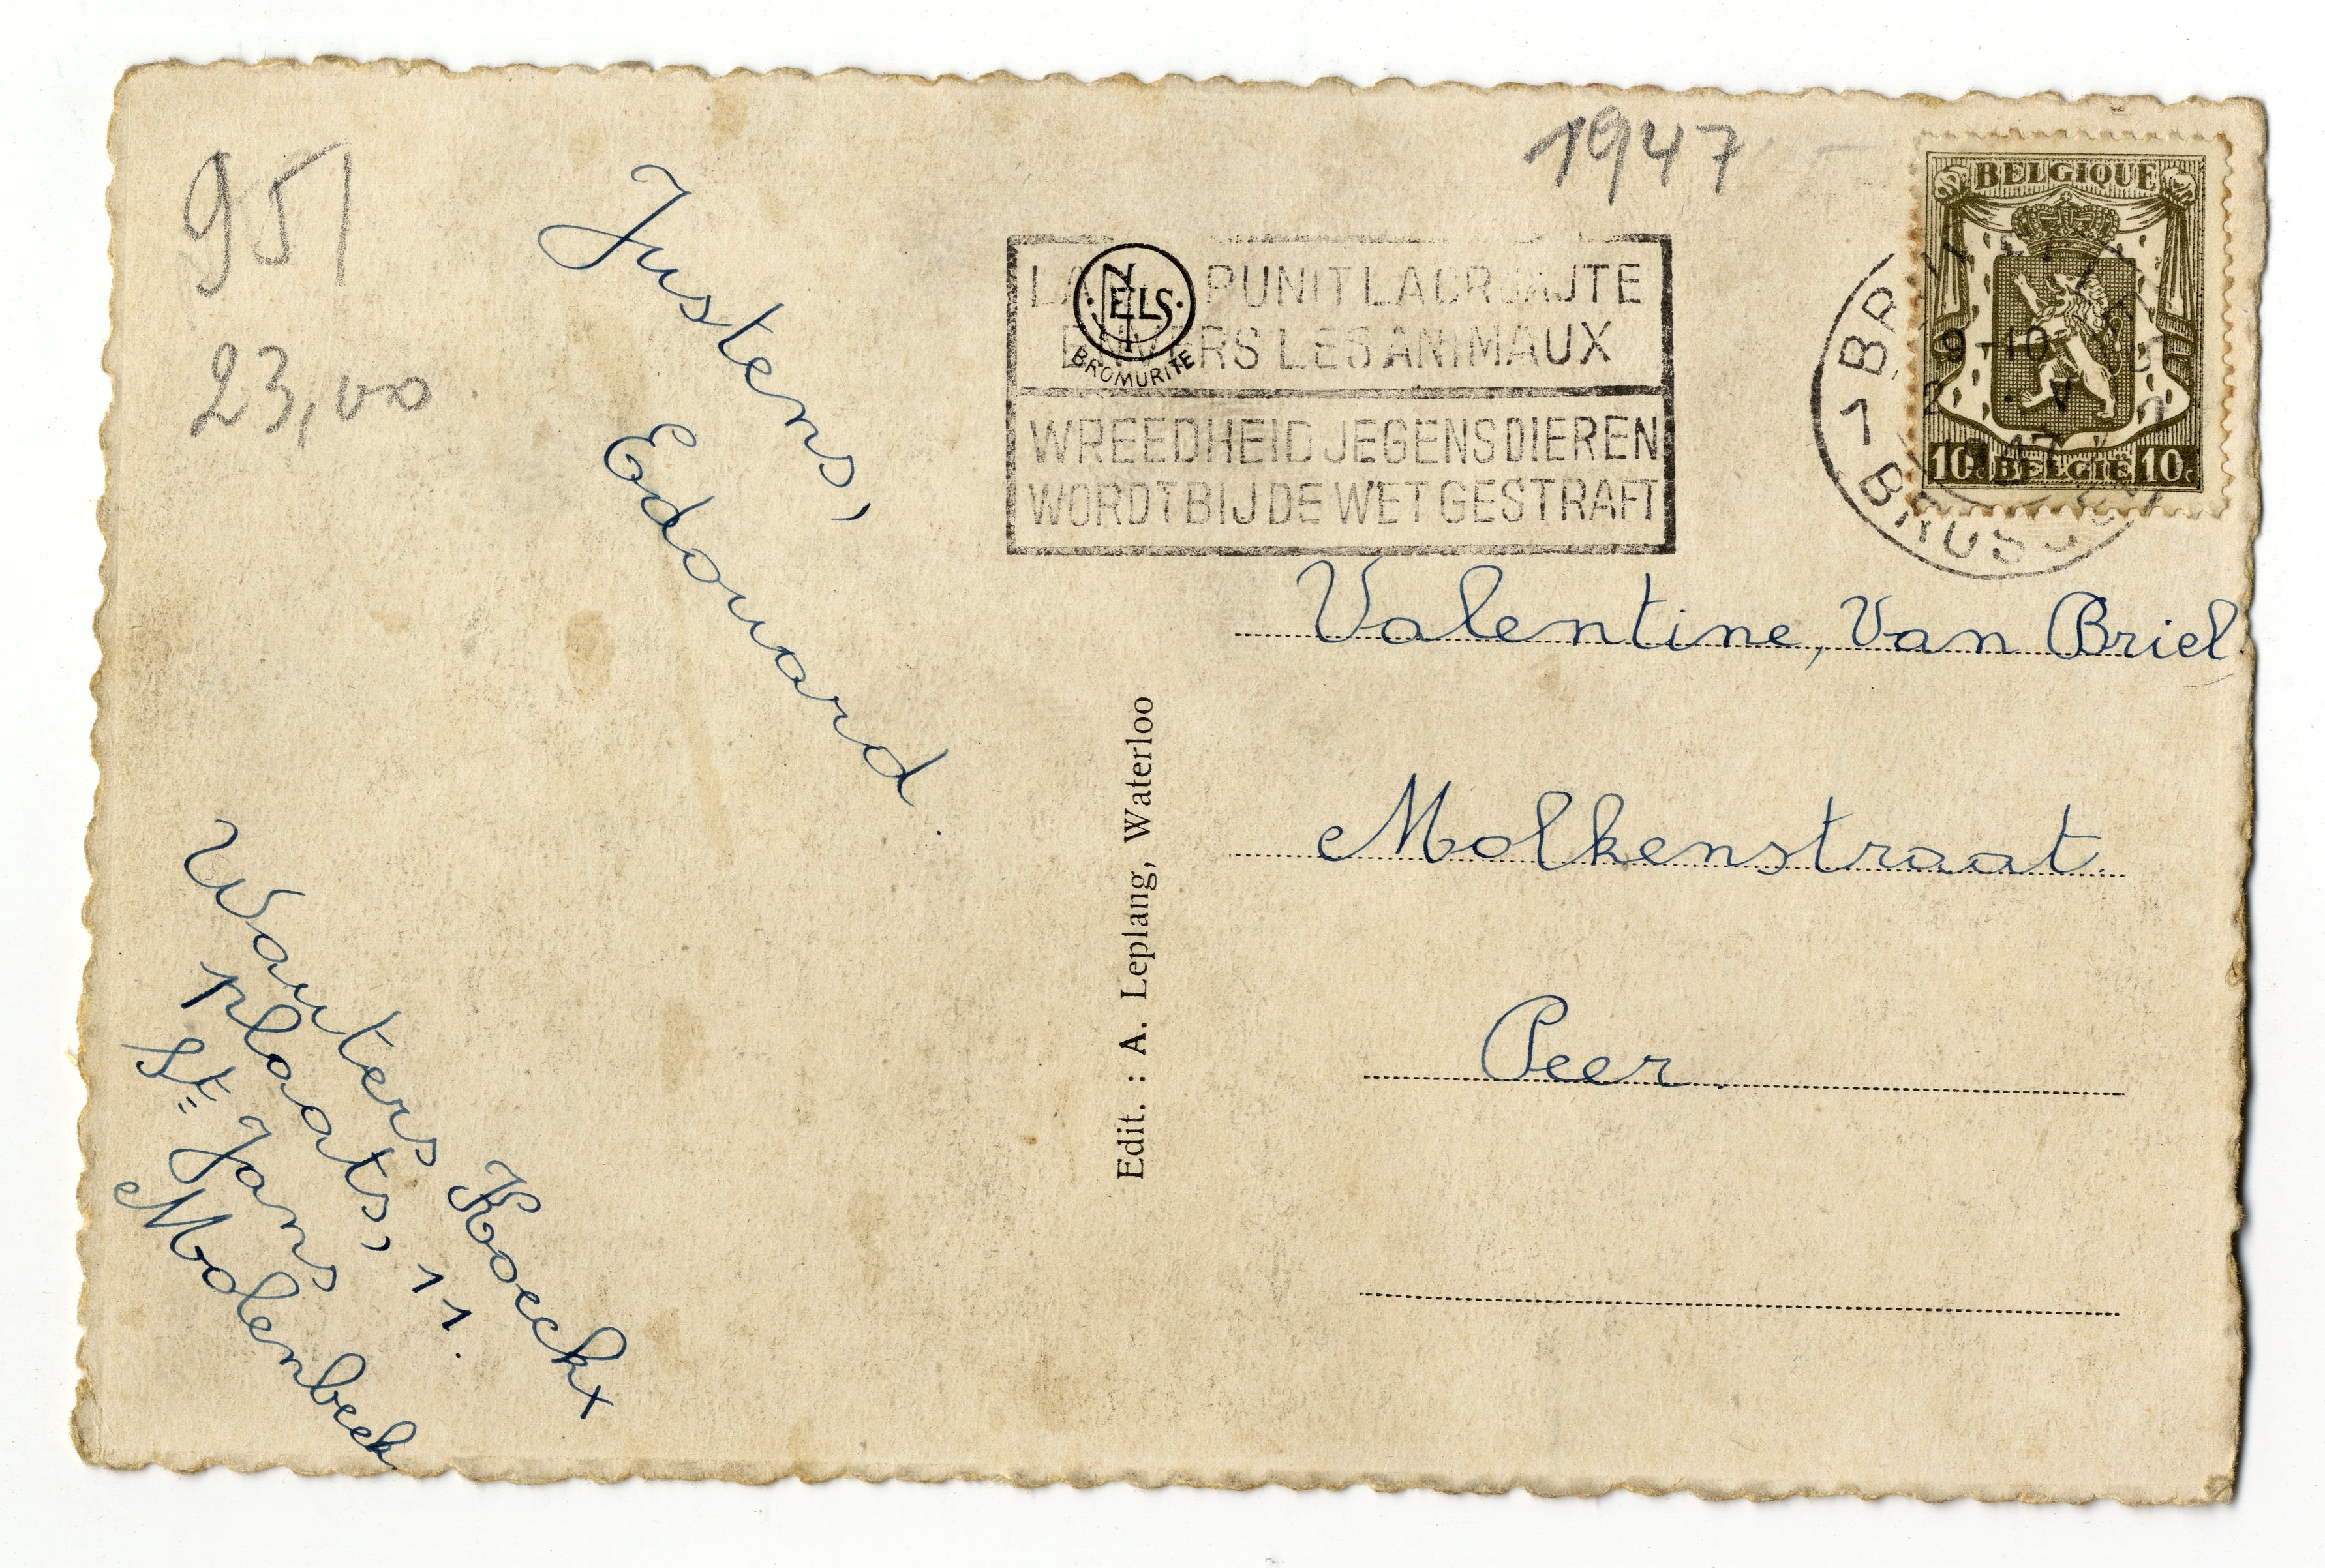 951
23,00
Justens,
Edouard.
Wauters Koeckx
plaats, 11.
St Jans
Molenbeek
1947
NELS
BROMURITE
LA PUNIT LA CRUAUTE
ENVERS LES ANIMAUX
WREEDHEID JEGENS DIEREN
WORDT BIJ DE WET GESTRAFT
BELGIQUE
9-10
V
1947
10c BELGIË 10c
1 BRUSSEL
Valentine, Van Briel.
Molkenstraat.
Peer.
Edit. : A. Leplang, Waterloo